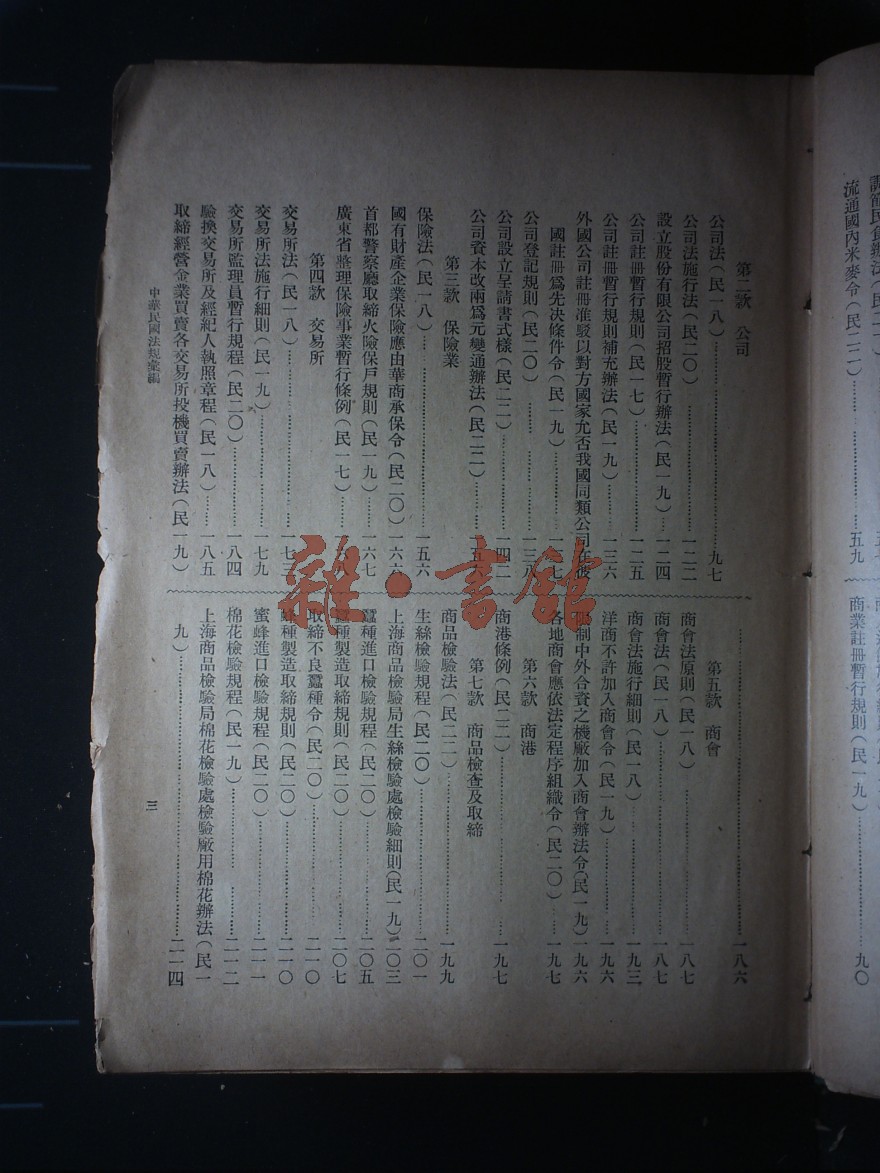 調節民食辦法(民二一)
流通國內米麥令(民二二)……五九
商業註冊暫行規則(民一九)……九〇
第二款　公司
公司法(民一八)……九七
公司法施行法(民二〇)……一二二
設立股份有限公司招股暫行辦法(民一九)……一二四
公司註冊暫行規則(民一七)……一二五
公司註冊暫行規則補充辦法(民一九)……一三六
外國公司註冊准駁以對方國家允否我國同類公司在彼
國註冊爲先決條件令(民一九)……一三七
公司登記規則(民二〇)……一三八
公司設立呈請書式樣(民二二)……一四二
公司資本改兩爲元變通辦法(民二二)……一五
第三款　保險業
保險法(民一八)……一五六
國有財產企業保險應由華商承保令(民二〇)……一六六
首都警察廳取締火險保戶規則(民一九)……一六七
廣東省整理保險事業暫行條例(民一七)……一六八
第四款　交易所
交易所法(民一八)……一七三
交易所法施行細則(民一九)……一七九
交易所監理員暫行規程(民二〇)……一八四
驗換交易所及經紀人執照章程(民一八)……一八五
取締經營金業買賣各交易所投機買賣辦法(民一九)
……一八六
第五款　商會
商會法原則(民一八)……一八七
商會法(民一八)……一八七
商會法施行細則(民一八)……一九三
洋商不許加入商會令(民一九)……一九六
限制中外合資之機廠加入商會辦法令(民一九)一九六
各地商會應依法定程序組織令(民二〇)……一九七
第六款　商港
商港條例(民二二)……一九七
第七款　商品檢查及取締
商品檢驗法(民二二)……一九九
生絲檢驗規程(民二〇)……二〇一
上海商品檢驗局生絲檢驗處檢驗細則(民一九)二〇三
蠶種進口檢驗規程(民二〇)……二〇五
蠶種製造取締規則(民二〇)……二〇七
取締不良蠶種令(民二〇)……二一〇
蜂種製造取締規則(民二〇)……二一〇
蜜蜂進口檢驗規程(民二〇)……二一一
棉花檢驗規程(民一九)……二一二
上海商品檢驗局棉花檢驗處檢驗廠用棉花辦法(民一
九)……二一四
中華民國法規彙編
三
雜·書館